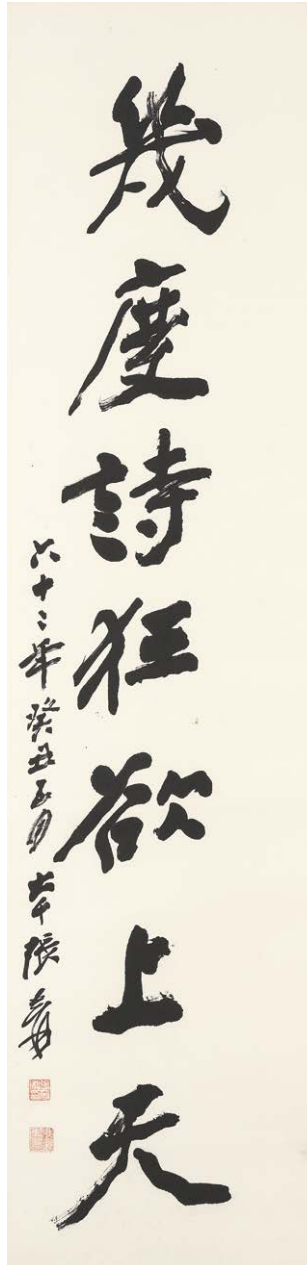 幾度詩狂欲上天
六十二年癸丑五月大千張爰